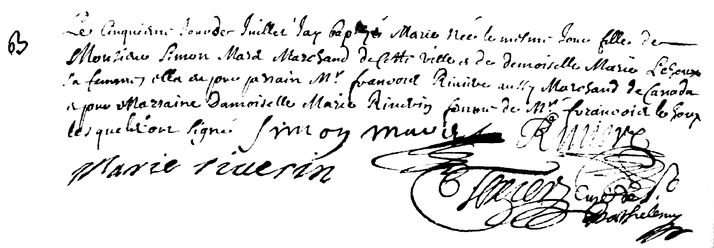 63
Le Cinquieme Jour de Juillet J'ay baptizé Marie née le mesme Jour fille de
Monsieur Simon Mard Marchand de cette ville et de demoiselle Marie Leroux
sa femme, ella eu pour parain Mr. francois Riuiere aussy Marchand de Canada
et pour Marraine Damoiselle Marie Riuerin femme de Mr. francois le Roux
lesquels ont signé Simon Mard Riuiere
Marie riuerin
Curé de St
Barthelemy